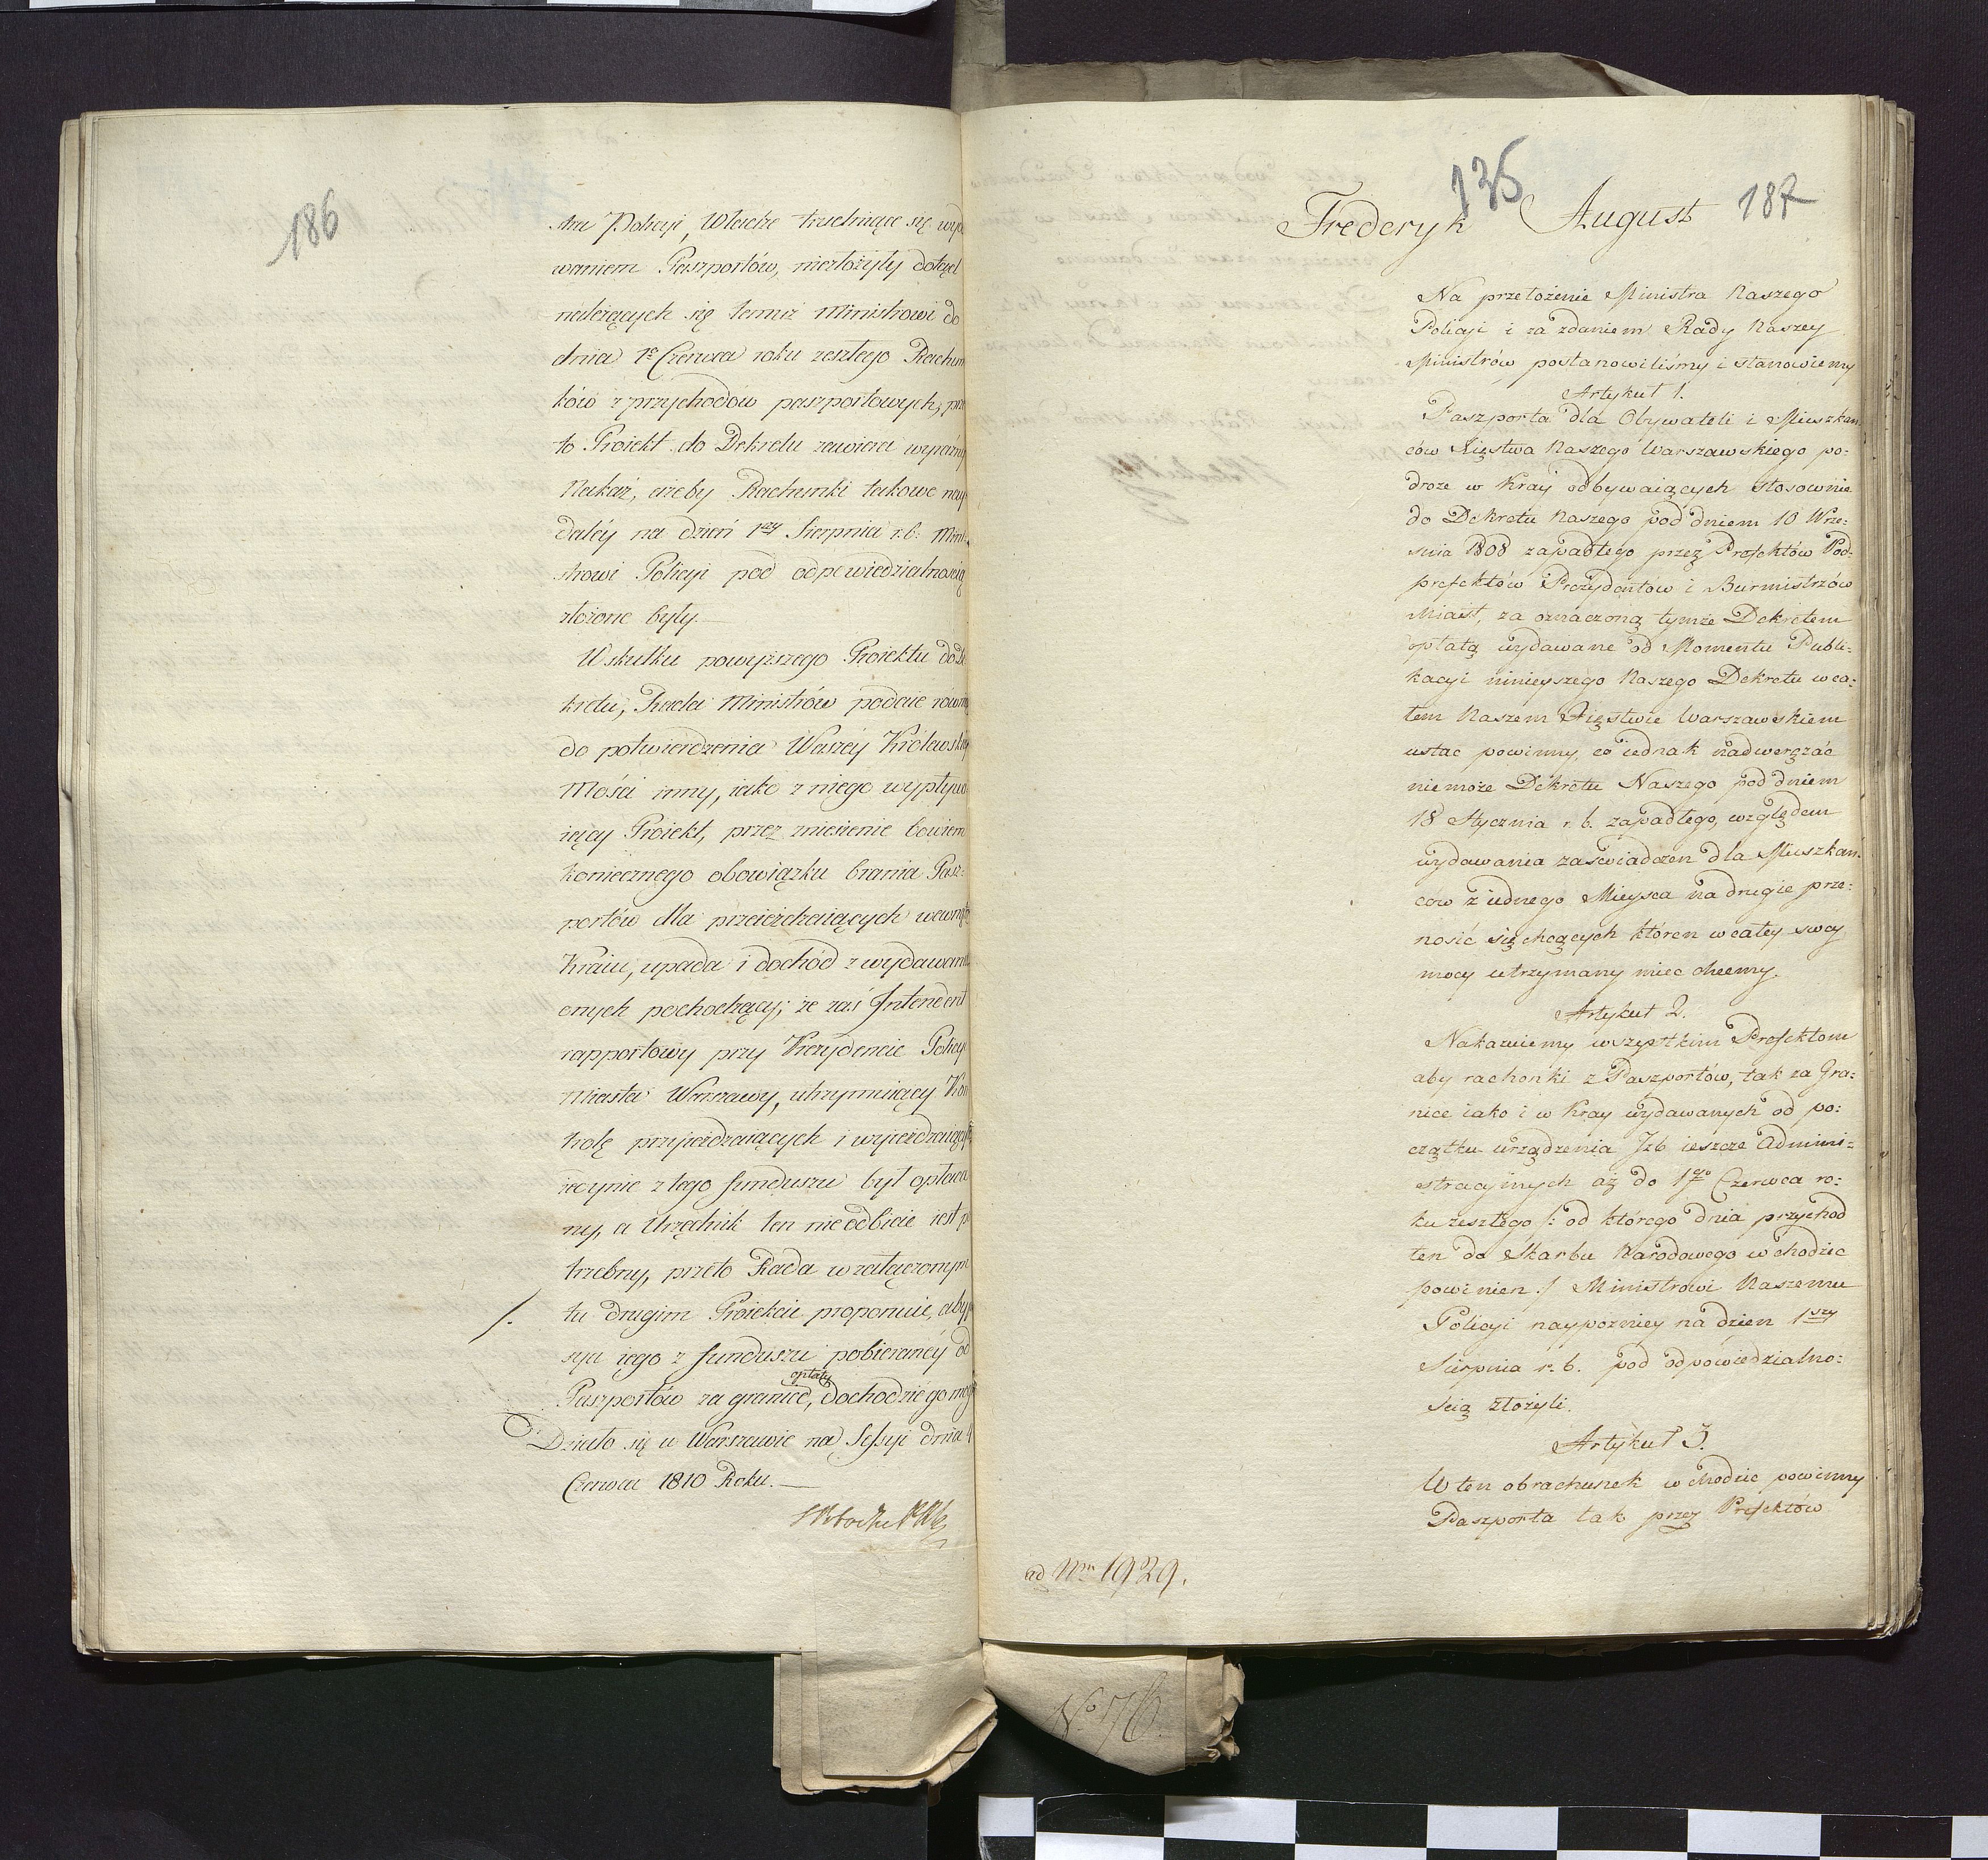 186
stra Policyi, Władze trudniące się wyda
waniem Paszportów, niezłożyły dotąd
należących się temuż Ministrowi do
dnia 1o Czerwca roku zeszłego Rachun
ków z przychodów paszportowych, prze
to Proiekt do Dekretu zawiera wyraźny
Nakaz, ażeby Rachunki takowe nay
daléy na dzień 1szy Sierpnia r. b. Mini
strowi Policyi pod odpowiedzialnością
złożone były.—
W skutku powyższego Proiektu do De
kretu, Rada Ministrów podaie równie
do potwierdzenia Waszéy Królewskiéy
Mości inny, iako z niego wypływa
iący Proiekt, przez zniesienie bowiem
koniecznego obowiązku brania Pasz-
portów dla przeieżdżaiących wewnątrz
Kraiu, upada i dochód z wydawania
onych pochodzący; że zaś Intendent
rapportowy przy Prezydencie Policyi
Miasta Warszawy, utrzymuiący Kon
trolę przyieżdzaiących i wyieżdzaiących
iedynie z tego funduszu był opłaca
ny, a Urzędnik ten nieodbicie iest po
trzebny, przeto Rada w załączonym
/. tu drugim Proiekcie proponuie, aby p
sya iego z funduszu pobieranéy od
opłaty
Paszportów za granicę, dochodzić go mog
Działo się w Warszawie na Sessyi dnia 4
Czerwca 1810 Roku.—
135
187
Frederyk August
Na przełożenie Ministra Naszego
Policyi i za zdaniem Rady Naszey
Ministrów postanowiliśmy i stanowiemy
Artykuł 1.
Paszporta dla Obywateli i Mieszkan
ców Xięstwa Naszego Warszawskiego po:
droże w Kray odbywaiących stosownie
do Dekretu Naszego pod dniem 10 Wrze:
snia 1808 zapadłego przez Prefektów Pod:
prefektów Prezydentów i Burmistrzów
Miast, za oznaczoną tymże Dekretem
opłatą wydawane od Momentu Publi:
kacyi ninieyszego Naszego Dekretu w ca:
łem Naszem Xięstwie Warszawskiem
ustac powinny, co iednak nadweręzać
niemoże Dekretu Naszego pod dniem
18 Stycznia r. b. zapadłego, względem
wydawania zaswiadczen dla Mieszkan:
cow z iednego Mieysca na drugie prze:
nosić się chcących któren w całey swey
mocy utrzymany miec chcemy.
Artykuł 2.
Nakazuiemy wszystkim Prefektom
aby rachonki z Paszportów, tak za Gra:
nice iako i w Kray wydawanych od po:
czątku urządzenia Izb ieszcze Admini:
stracyinych aż do 1go Czerwca ro:
ku zeszłego /: od którego dnia przychod
ten do Skarbu Narodowego wchodzic
powinien :/ Ministrowi Naszemu
Policyi naypozniey na dzien 1szy
Sierpnia r. b. pod odpowiedzialno:
ścią złożyli.
Artykuł 3.
W ten obrachunek wchodzic powinny
Paszporta tak przez Prefektów
ad Nrm 1929.
No 76.